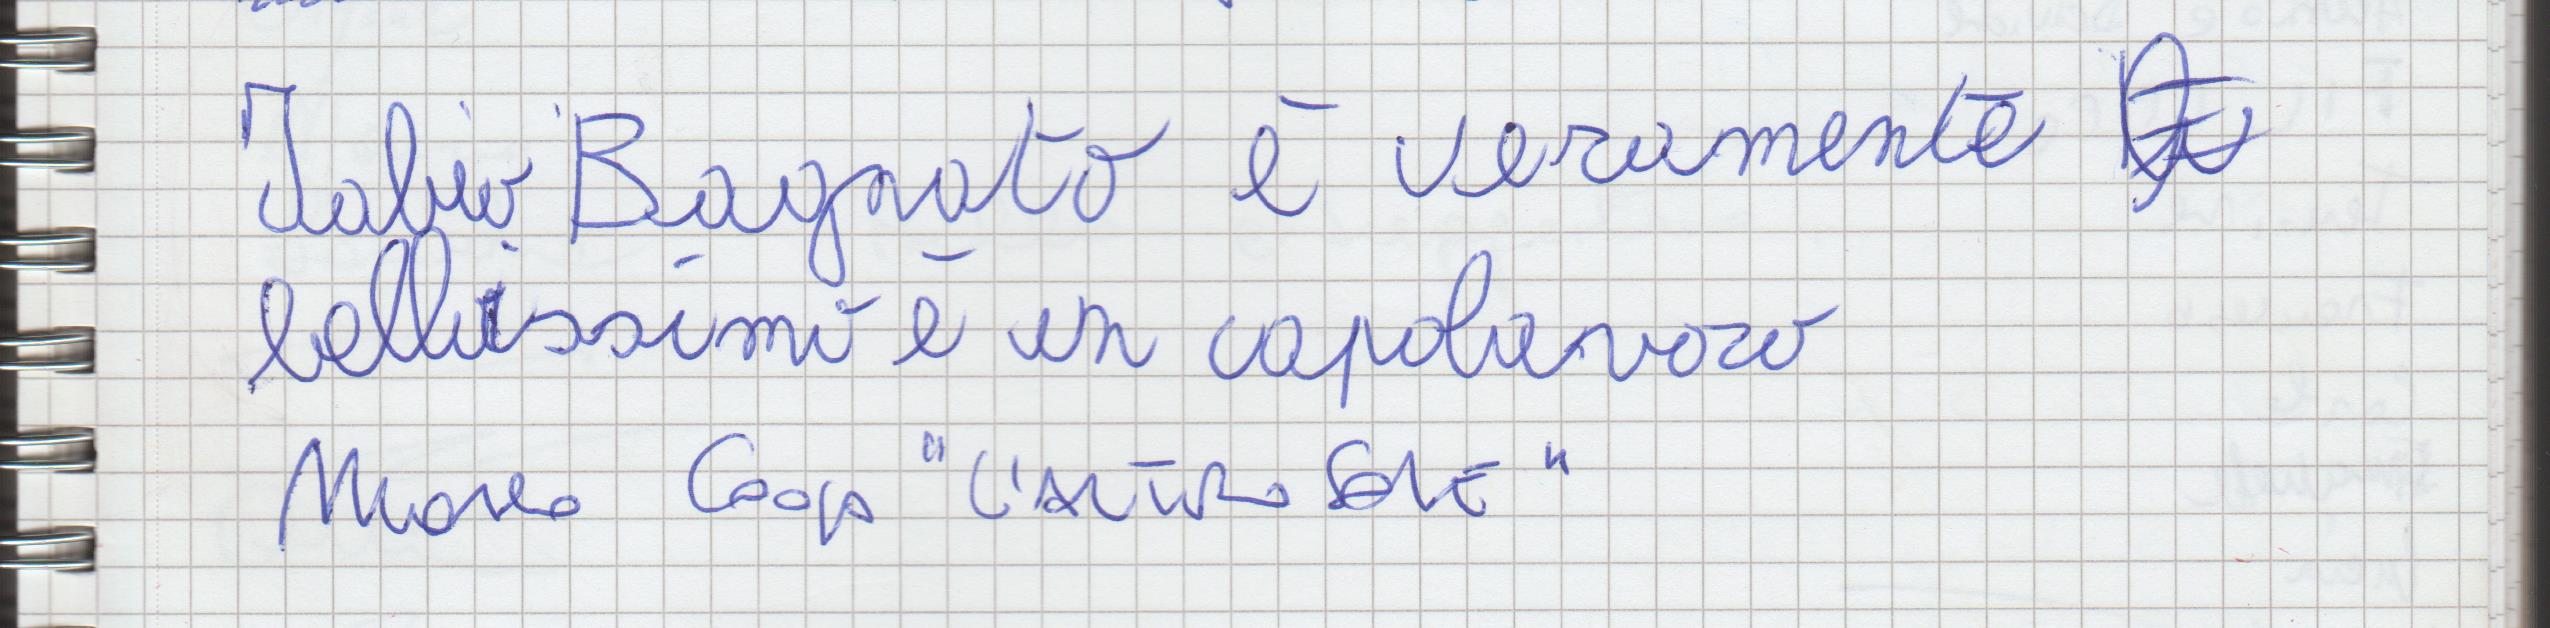 Fabio Bagnato è veramente
bellissimo è un capolavoro
Marco Coop "L'ALTRO SOLE"